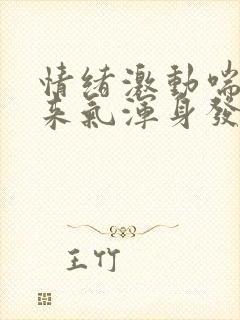 情绪激動喘
来氣渾身發
王竹